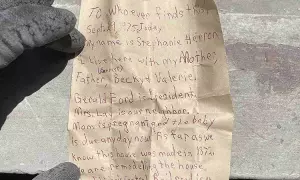 To Whoever finds this
Sept. 1975 Today
My name is Stephanie
I live here with my Mother,
Father, Becky & Valerie.
Gerald Ford is President.
Mrs. is our neighbor.
Mom is pregnant and the baby
is due any day now. As far as we
know this house was made in 1872.
We are remodeling the house